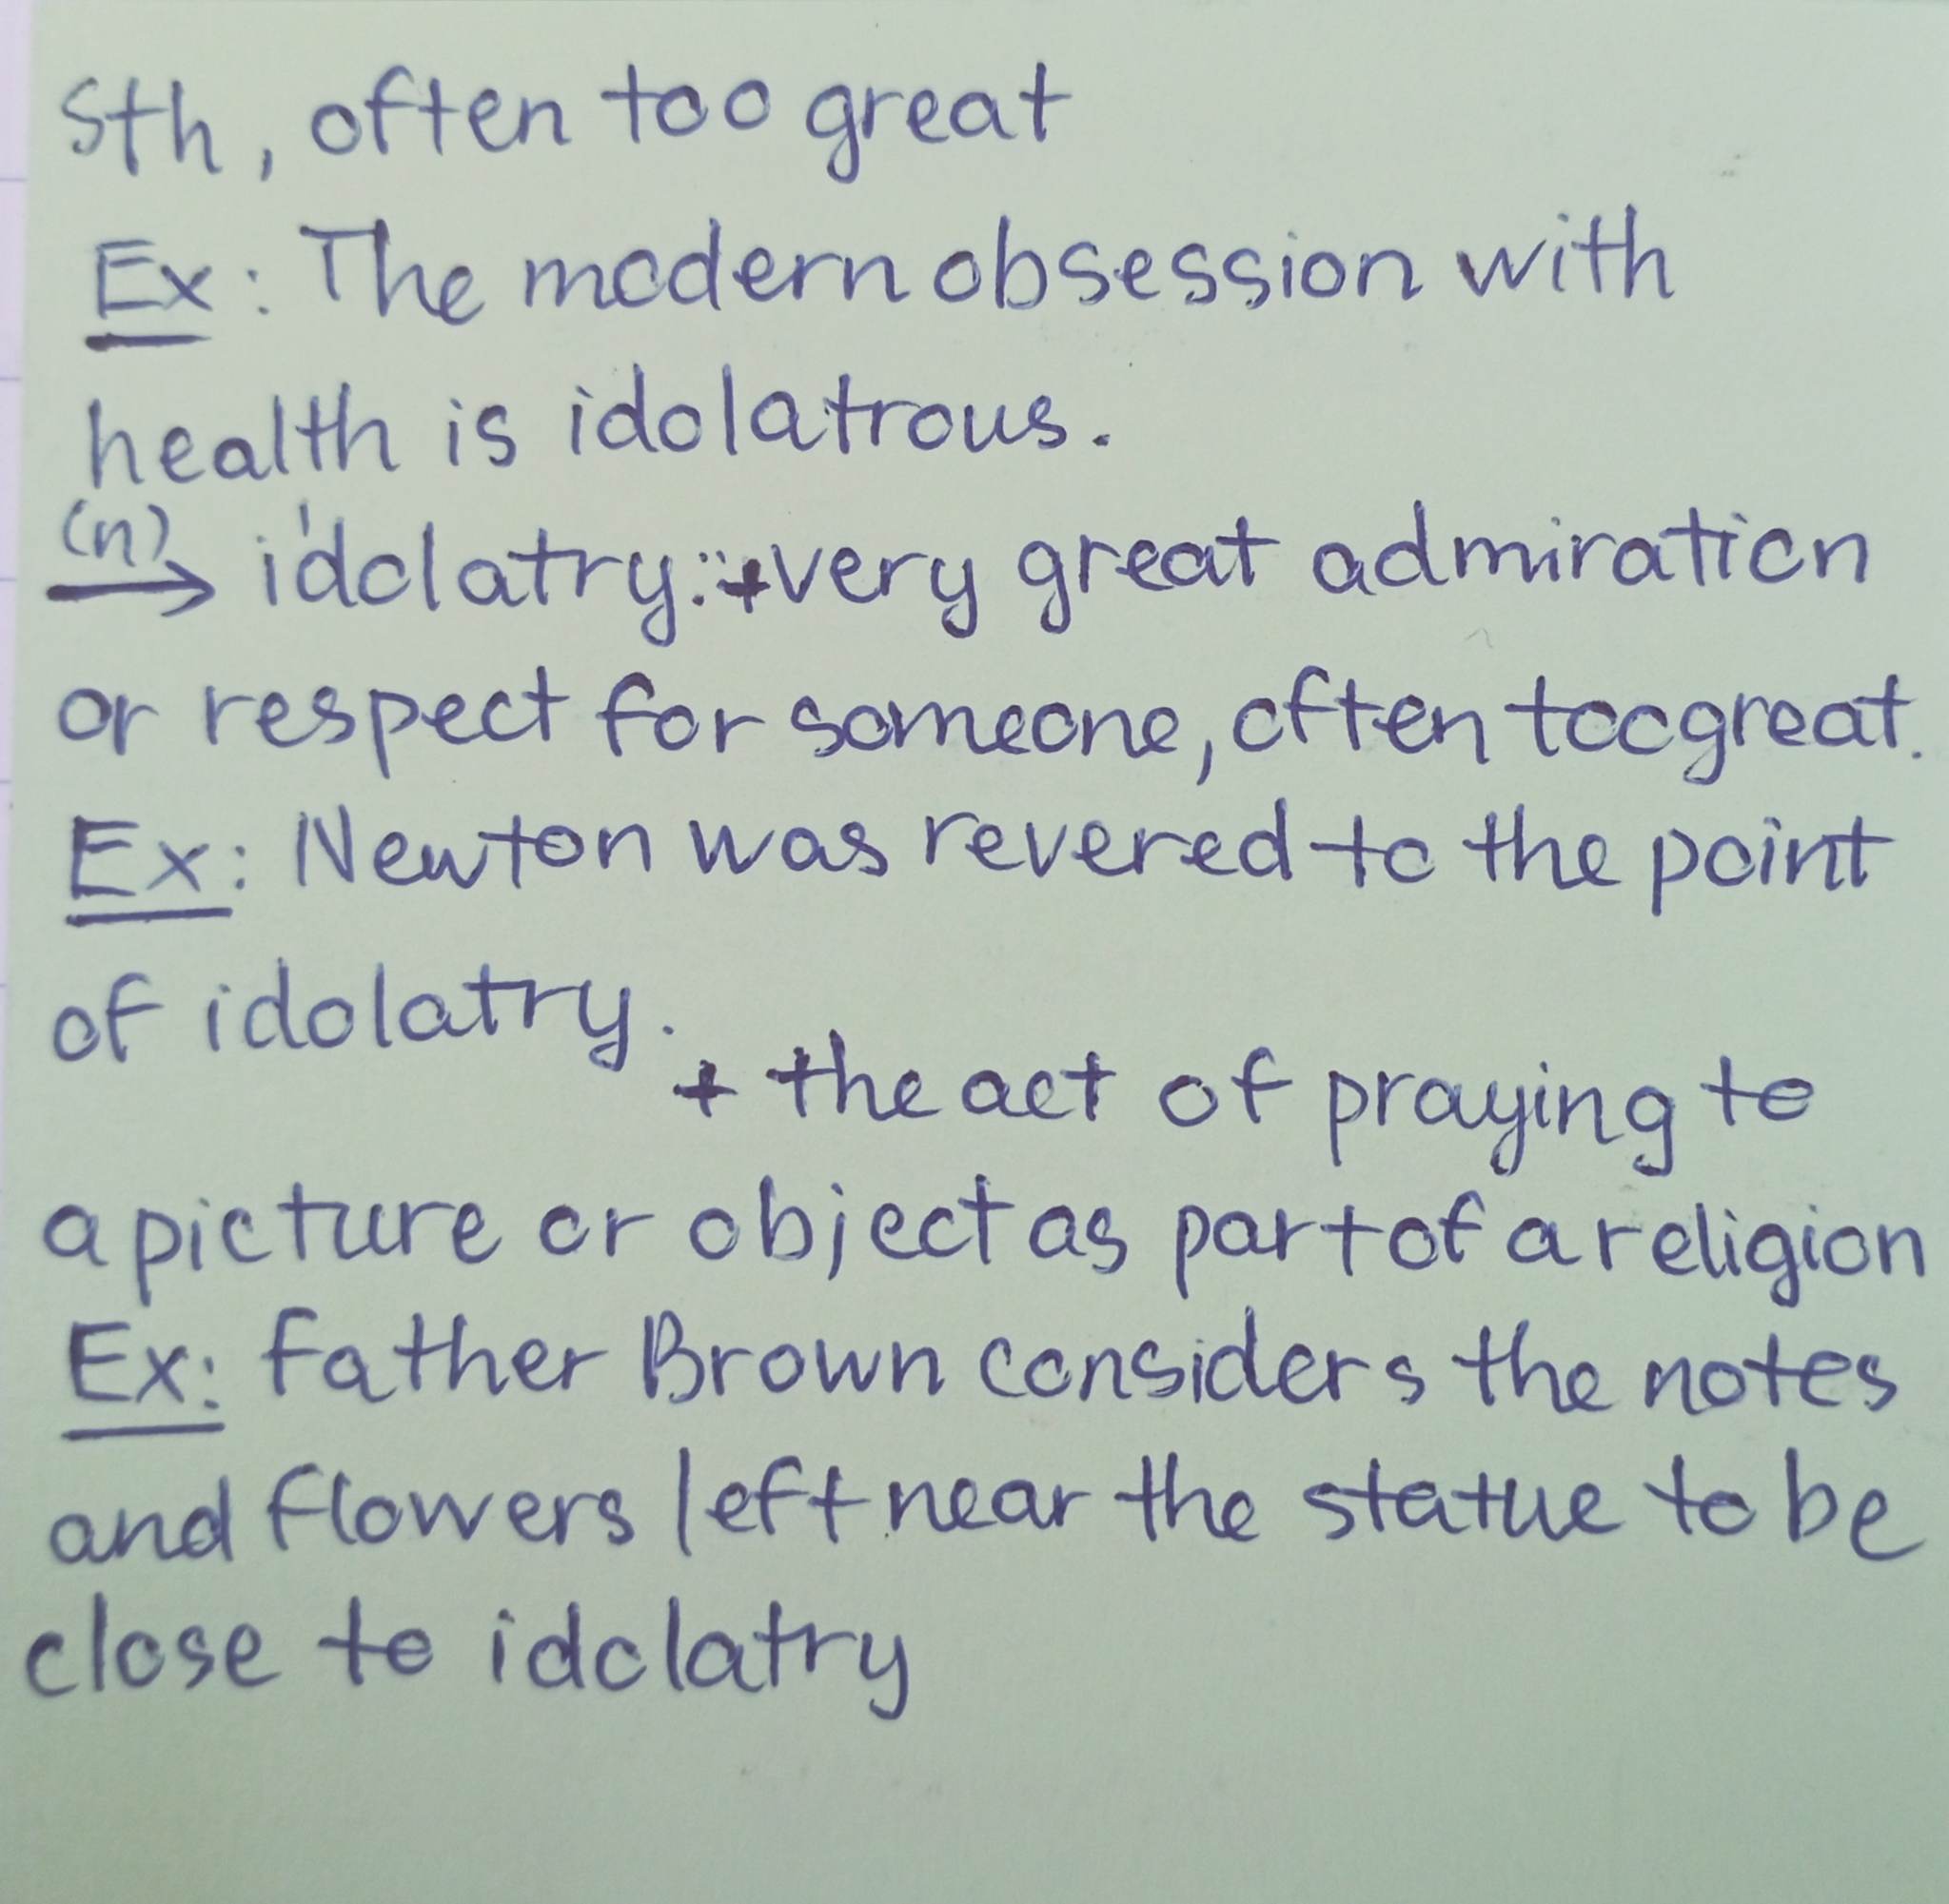 Sth, often too great
Ex: The modern obsession with
health is idolatrous.
(n)→ i'dolatry: +very great admiration
or respect for someone, often too great.
Ex: Newton was revered to the point
of idolatry.
+ the act of praying to
a picture or object as part of a religion
Ex: Father Brown considers the notes
and flowers left near the statue to be
close to idolatry